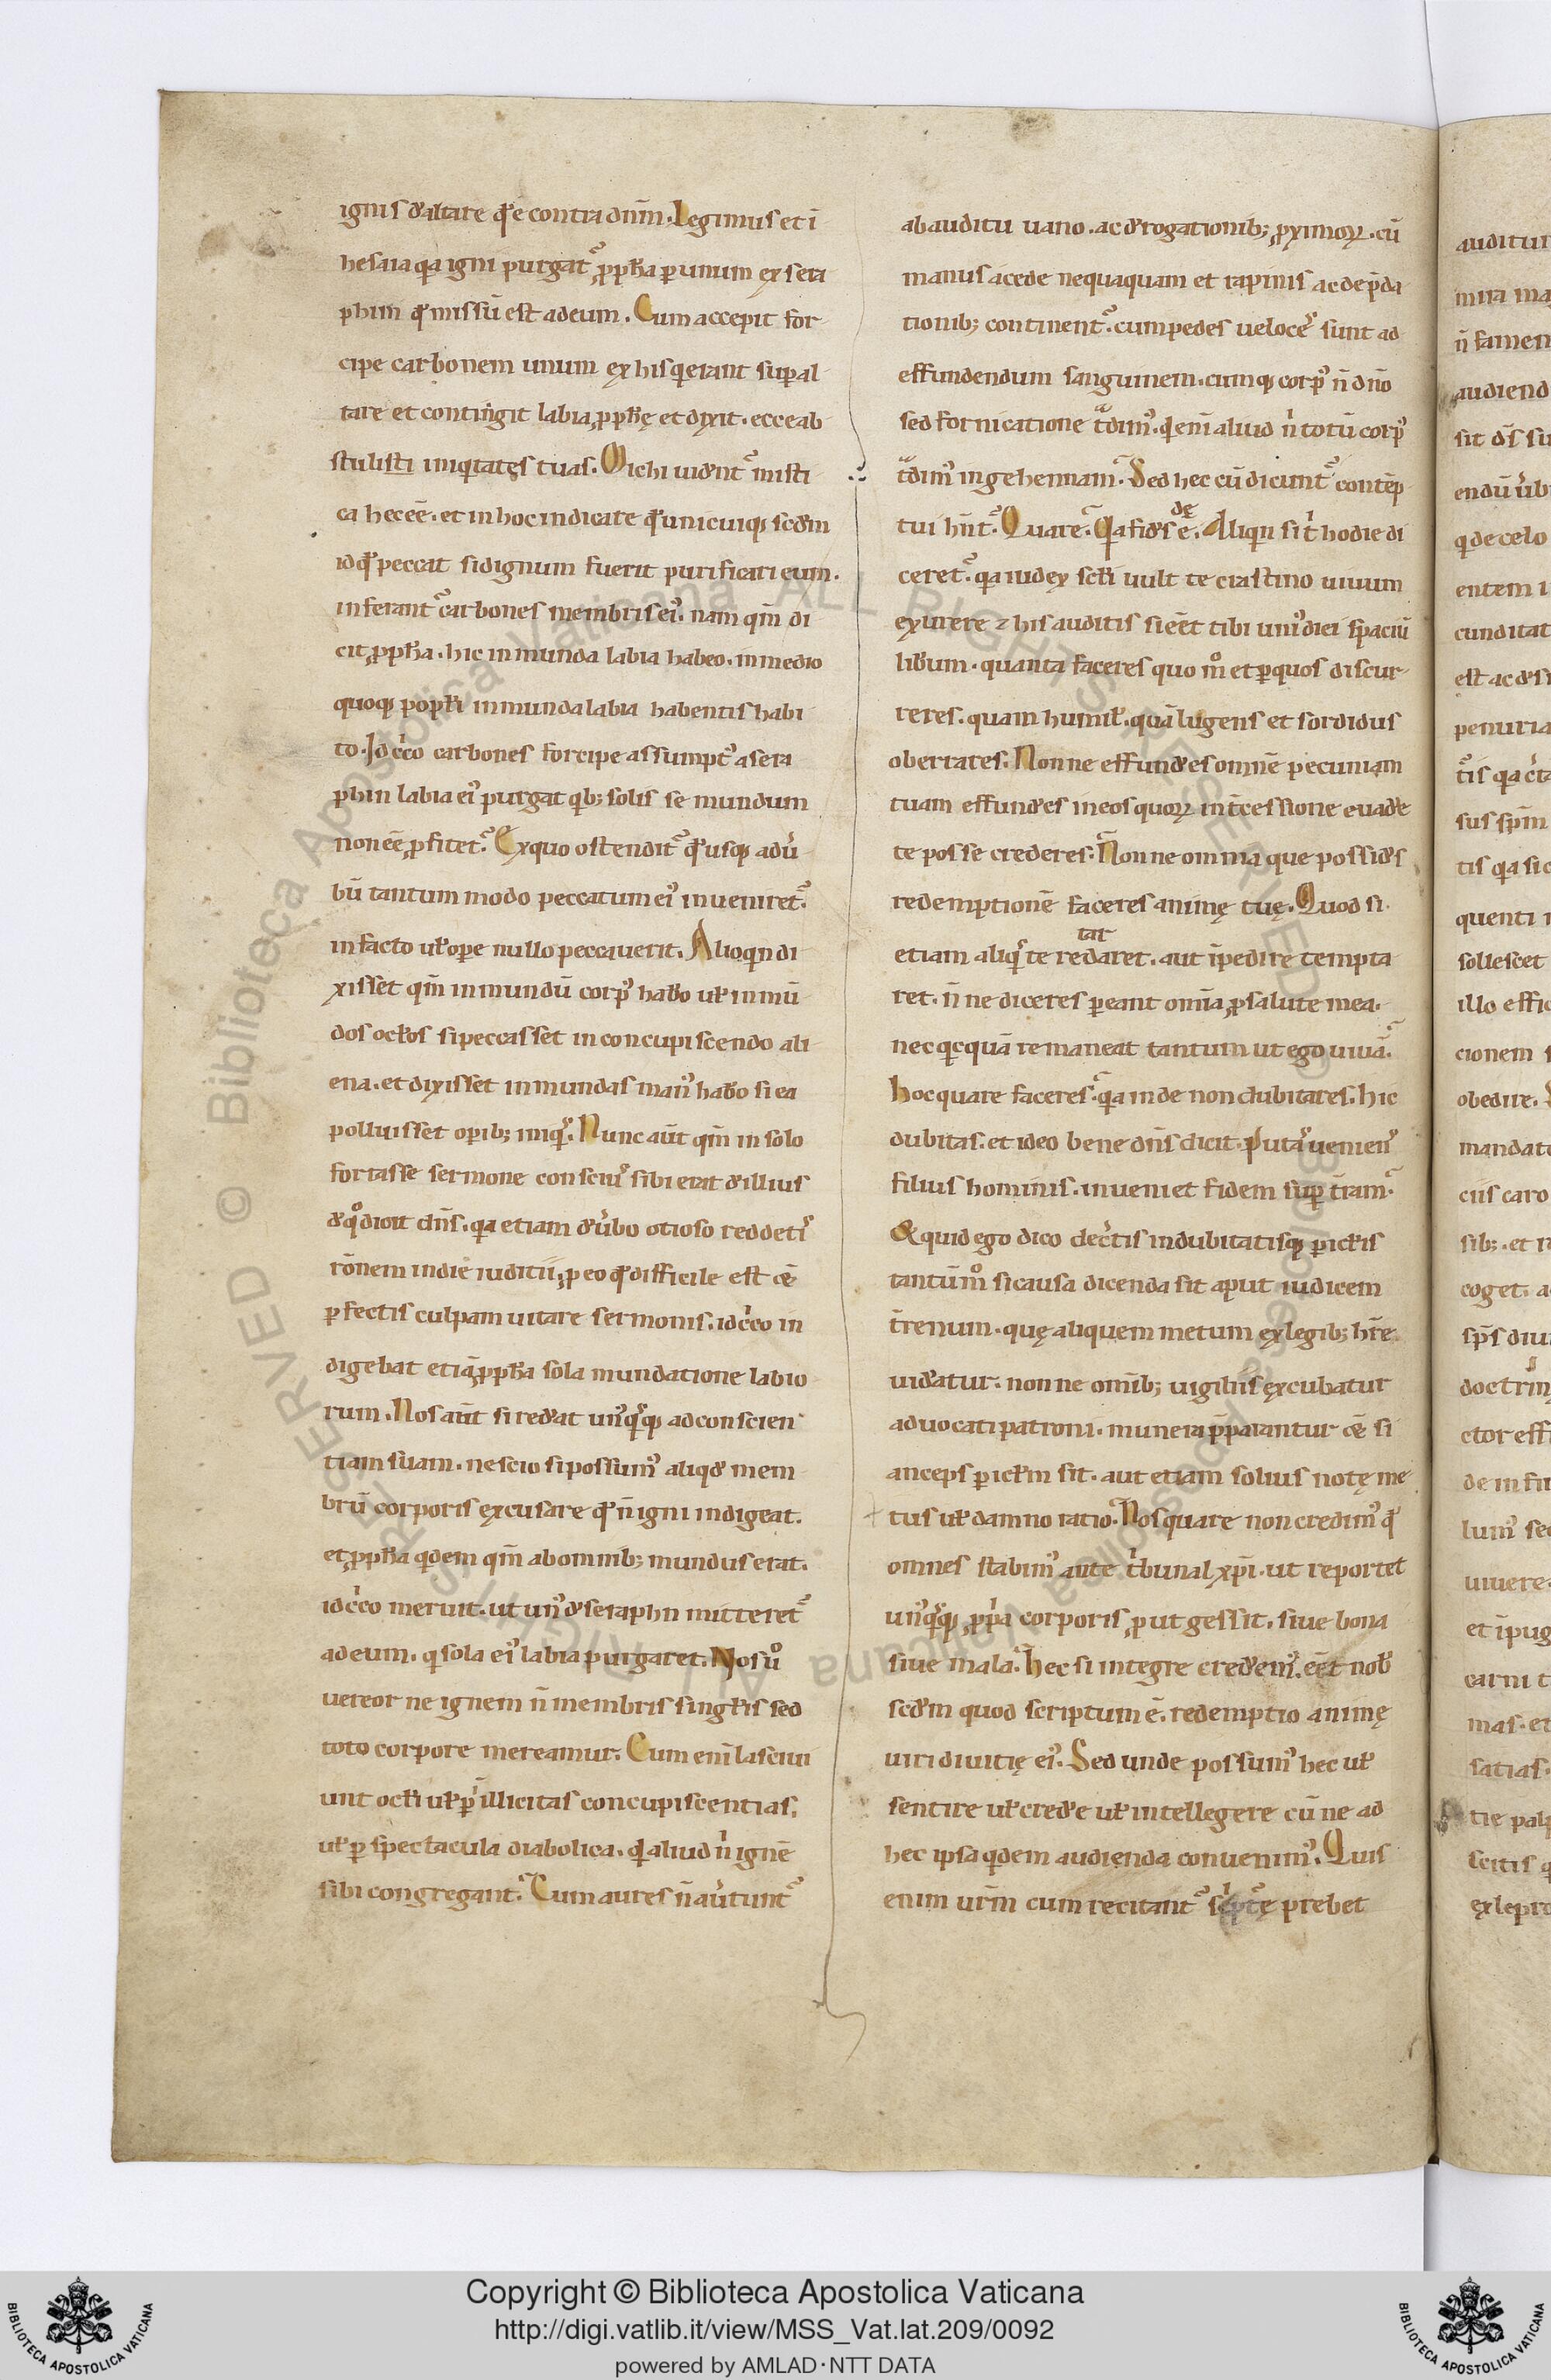 ignis d̵altare qd̵ ÷ contra dn̄m. Legimus et ī
hesaia qa igni purgat᷑ ꝓpħa ꝑ unum ex sera
phim qd̵ missū est ad eum. Cum accepit for
cipe carbonem unum ex his q erant sup al
tare et contingit labia ꝓpħę et dixit. ecce ab
stulisti iniqtates tuas. Michi uident᷑ misti
ca hec eē. et in hoc indicare qd̵ unicuiqꝫ scd̵m
id qd̵ peccat si dignum fuerit purificari eum.
inferant᷑ carbones membris ei᷒. nam qm̄ di
cit ꝓpħa. hic inmunda labia habeo. in medio
quoqꝫ popłi inmunda labia habentis habi
to. Idcͥco carbones forcipe assumpt᷒ a sera
phin labia ei᷒ purgat qbꝫ solis se mundum
non eē ꝓfitet᷑. Ex quo ostendit᷑ qd̵ usqꝫ ad u̓
bū tantum modo peccatum ei᷒ inueniret᷑.
in facto uł ope nullo peccauerit. Alioqn di
xisset qm̄ inmundū corp᷒ hab̵o uł inmū
dos ocłos si peccasset in concupiscendo ali
ena. et dixisset inmundas man᷒ hab̵o si ea
polluisset opibꝫ iniq᷒. Nunc aūt qm̄ in solo
fortasse sermone consciu᷒ sibi erat d̵ illius
d̵ qͦ dicit dn̄s. qa etiam d̵ u̓bo otioso reddet᷑
rōnem in die iuditii, ꝓ eo qd̵ difficile est &̄
ꝑfectis culpam uitare sermonis. idcͥco in
digebat etiā ꝓpħa sola mundatione labio
rum. Nos aūt si red̵at un᷒qͥsqꝫ ad conscien
tiam suam. nescio si possum᷒ aliqd̵ mem
brū corporis excusare qd̵ n̄ igni indigeat.
et ꝓpħa qdem qm̄ ab omnibꝫ mundus erat.
idcͥco meruit. ut un᷒ d̵ seraphn mitteret᷑
ad eum. q sola ei᷒ labia purgaret. Nos uͦ
uereor ne ignem n̄ membris singłis sed
toto corpore mereamur. Cum enī lasciui
unt ocłi uł ꝑ illicitas concupiscentias,
uł ꝑ spectacula diabolica. qd aliud nͥ ignē
sibi congregant. Cum aures n̄ au̓tunt᷑
ab auditu uano. ac d̵rogationibꝫ ꝓximoꝝ. cū
manus a cede nequaquam et rapinis ac dep̄da
tionibꝫ continent᷑. cum pedes uelocē sunt ad
effundendum sanguinem. cumqꝫ corp᷒ n̄ dn̄o
sed fornicatione tͣdim᷒. qd enī aliud nͥ totū corp᷒
tͣdim᷒ in gehennam. Sed hec cū dicunt᷑ contēp
tui hn̄t᷑. Quare. Qa fid̵s de ē. Aliqn si t̓ hodie di
ceret᷑. qa iudex scłi uult te crastino uiuum
exurere ⁊ his auditis si eēt tibi uni᷒ diei spaciū
lib̵um. quanta faceres quo mͦ et ꝑ quos discur
reres. quam humił. quā lugens et sordidus
oberrares. Nonne effund̵es omnē pecuniam
tuam effund̵es in eos quoꝝ int̄cessione euad̵e
te posse crederes. Nonne omnia que possid̵s
redemptionē faceres animę tuę. Quod si
etiam aliqͥs te redaret. tar aut īpedire tempta
ret. n̄ ne diceres ꝑeant omīa ꝓ salute mea.
nec qcquā remaneat tantum ut ego uiuā.
Hoc quare faceres. qa inde non dubitares. hic
dubitas. et ideo bene dn̄s dicit. Putas ueniens
filius hominis. inueniet fidem sup t̄ram.
& quid ego dico de ct̓is indubitatisqꝫ ꝑicłis
tantūmͦ si causa dicenda sit aput iudicem
t̄renum. quę aliquem metum ex legibꝫ hr̄e
uid̵atur. nonne omībꝫ uigiliis excubatur
aduocati patroni. munera p̄parantur &̄ si
anceps ꝑicłm sit. aut etiam solius notę me
tus uł damno ratio. Nos quare non credim᷒ qd̵
omnes stabim᷒ ante tͥbunal xp̄i. ut reportet
un᷒qͥsqꝫ ꝓpͥa corporis ꝓut gessit. siue bona
siue mala. Hec si integre cred̵em᷒. eēt nob̵
scd̵m quod scriptum ē. redemptio animę
uiri diuitię ei᷒. Sed unde possum᷒ hec uł
sentire uł cred̵e uł intellegere cū ne ad
hec ipsa qdem audienda conuenim᷒. Quis
enim ur̄m cum recitant᷑ scͥptᷓę prebet
auditur
mira ma
n̄ famem
audiend
sit d̄s su
endū u̓bi
q de celo
entem
cunditat
est ac d̵
penuria
tis qa
sus sp̄m
tis qa sic
quenti
sollescet
illo effic
cionem
obedire.
mandat
ciis caro
sibꝫ. et
coget. a
sp̄s diu
doctrin
ctor eff
de infi
lum᷒ se
uiuere.
et īpug
carni
mas. et
satias.
tie palp
scitis q
ex lepro
© Biblioteca Apostolica Vaticana ALL RIGHTS RESERVED
Copyright © Biblioteca Apostolica Vaticana
http://digi.vatlib.it/view/MSS_Vat.lat.209/0092
powered by AMLAD·NTT DATA
BIBLIOTECA APOSTOLICA VATICANA
BIBLIOTECA APOSTOLICA VATICANA